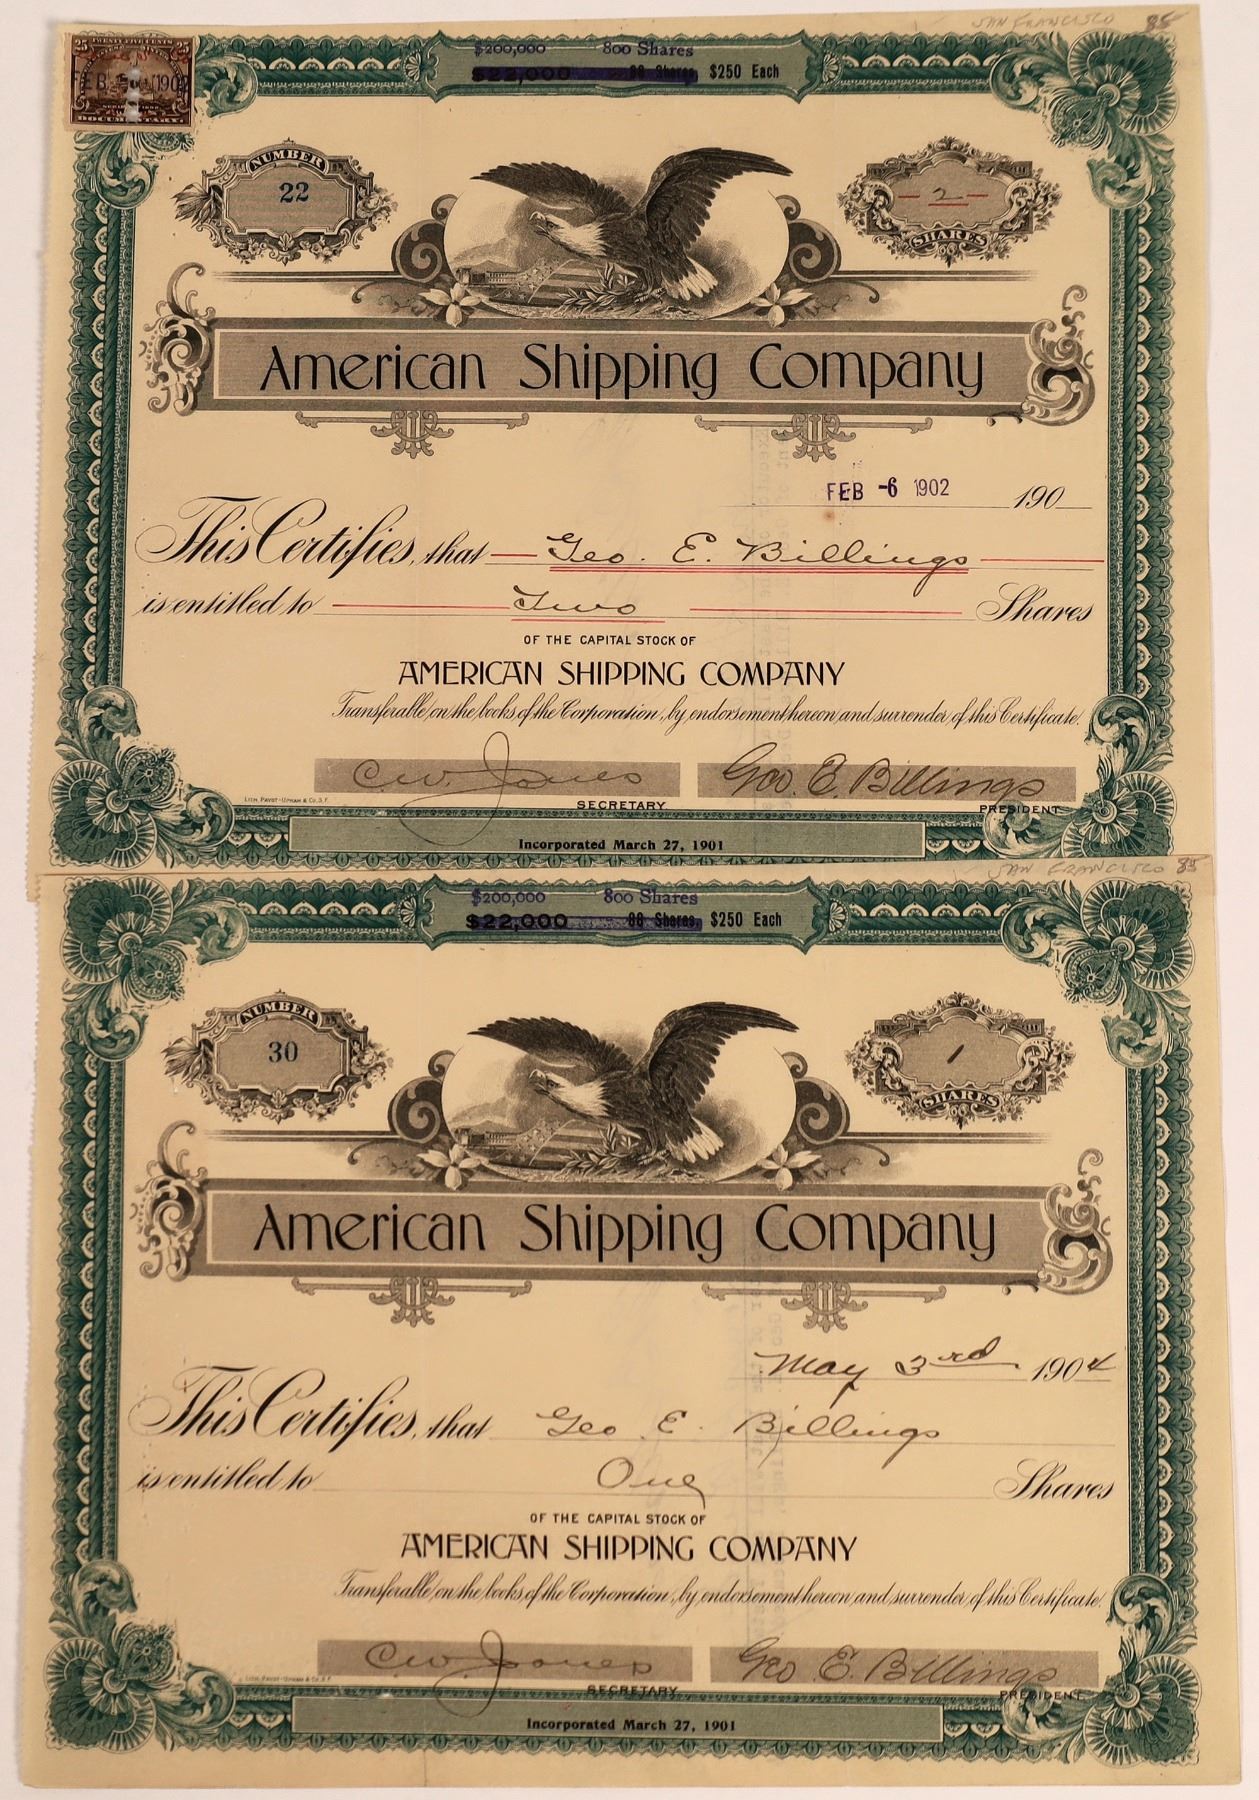 SAN FRANCISCO 85
25 TWENTY FIVE CENTS 25
FEB 1902
DOCUMENTARY.
$200,000 800 Shares
$22,000 88 Shares, $250 Each
NUMBER
22
- 2 -
SHARES
American Shipping Company
FEB -6 1902 190
This Certifies, that Geo. E. Billings
is entitled to Two Shares
OF THE CAPITAL STOCK OF
AMERICAN SHIPPING COMPANY
Transferable on the books of the Corporation, by endorsement hereon and surrender of this Certificate.
C W. Jones Geo. E. Billings
LITH. PAYOT-UPHAM & CO. S.F. SECRETARY PRESIDENT
Incorporated March 27, 1901
SAN FRANCISCO 85
$200,000 800 Shares
$22,000 88 Shares, $250 Each
NUMBER
30
1
SHARES
American Shipping Company
May 3rd 1904
This Certifies, that Geo E. Billings
is entitled to One Shares
OF THE CAPITAL STOCK OF
AMERICAN SHIPPING COMPANY
Transferable on the books of the Corporation, by endorsement hereon and surrender of this Certificate.
C W. Jones Geo E. Billings
LITH. PAYOT-UPHAM & CO. S.F. SECRETARY PRESIDENT
Incorporated March 27, 1901